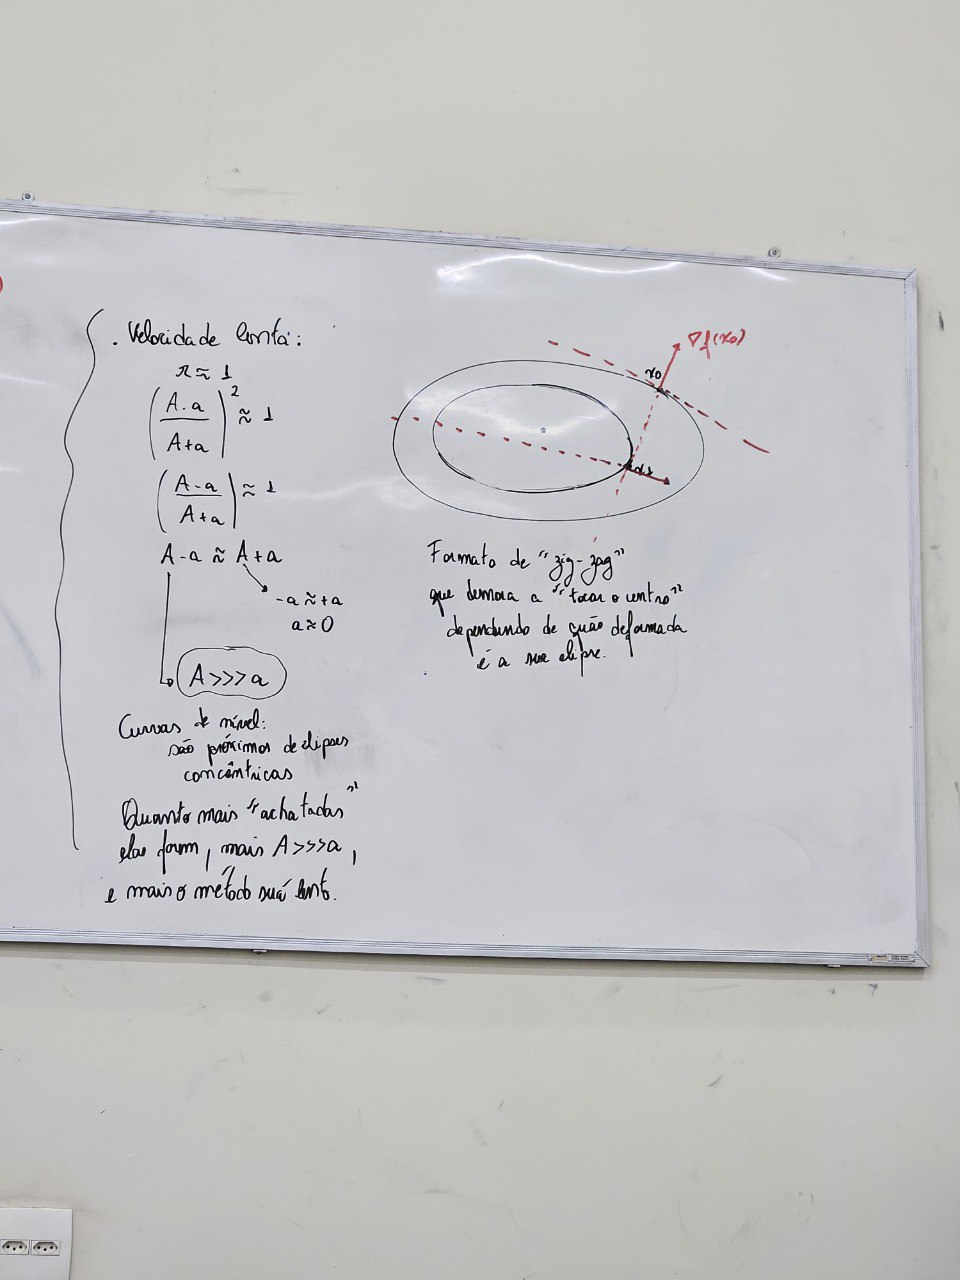 . Velocidade lenta:
r ≈ 1
(A-a / A+a)² ≈ 1
(A-a / A+a) ≈ 1
A-a ≈ A+a
-a ≈ +a
a ≈ 0
A>>>a
Curvas de nível:
são próximos de elipses
concêntricas
Quanto mais "achatadas"
elas forem, mais A>>>a,
e mais o método será lento.
∇f(x₀)
x₀
x₁
Formato de "zig-zag"
que demora a "tocar o centro"
dependendo de quão deformada
é a sua elipse.